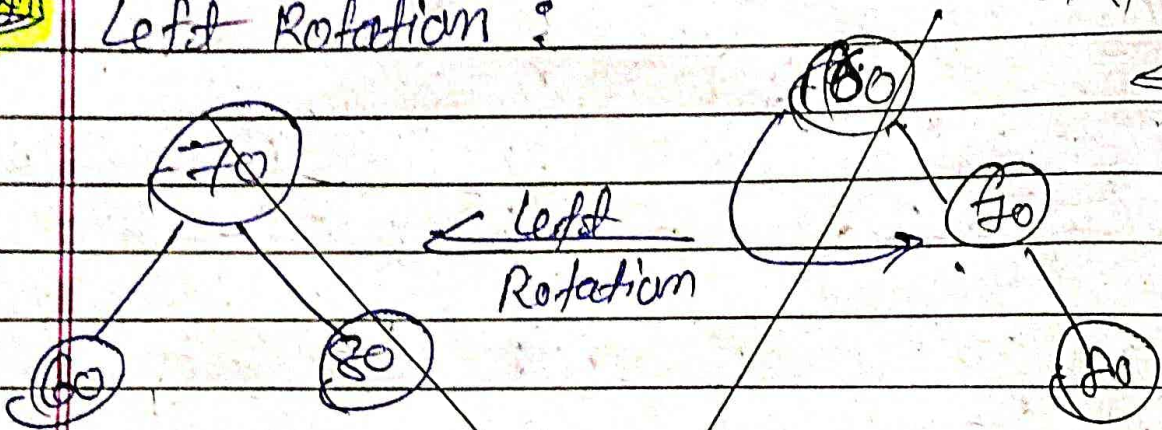 Left Rotation :
60
70
70
Left
Rotation
60
80